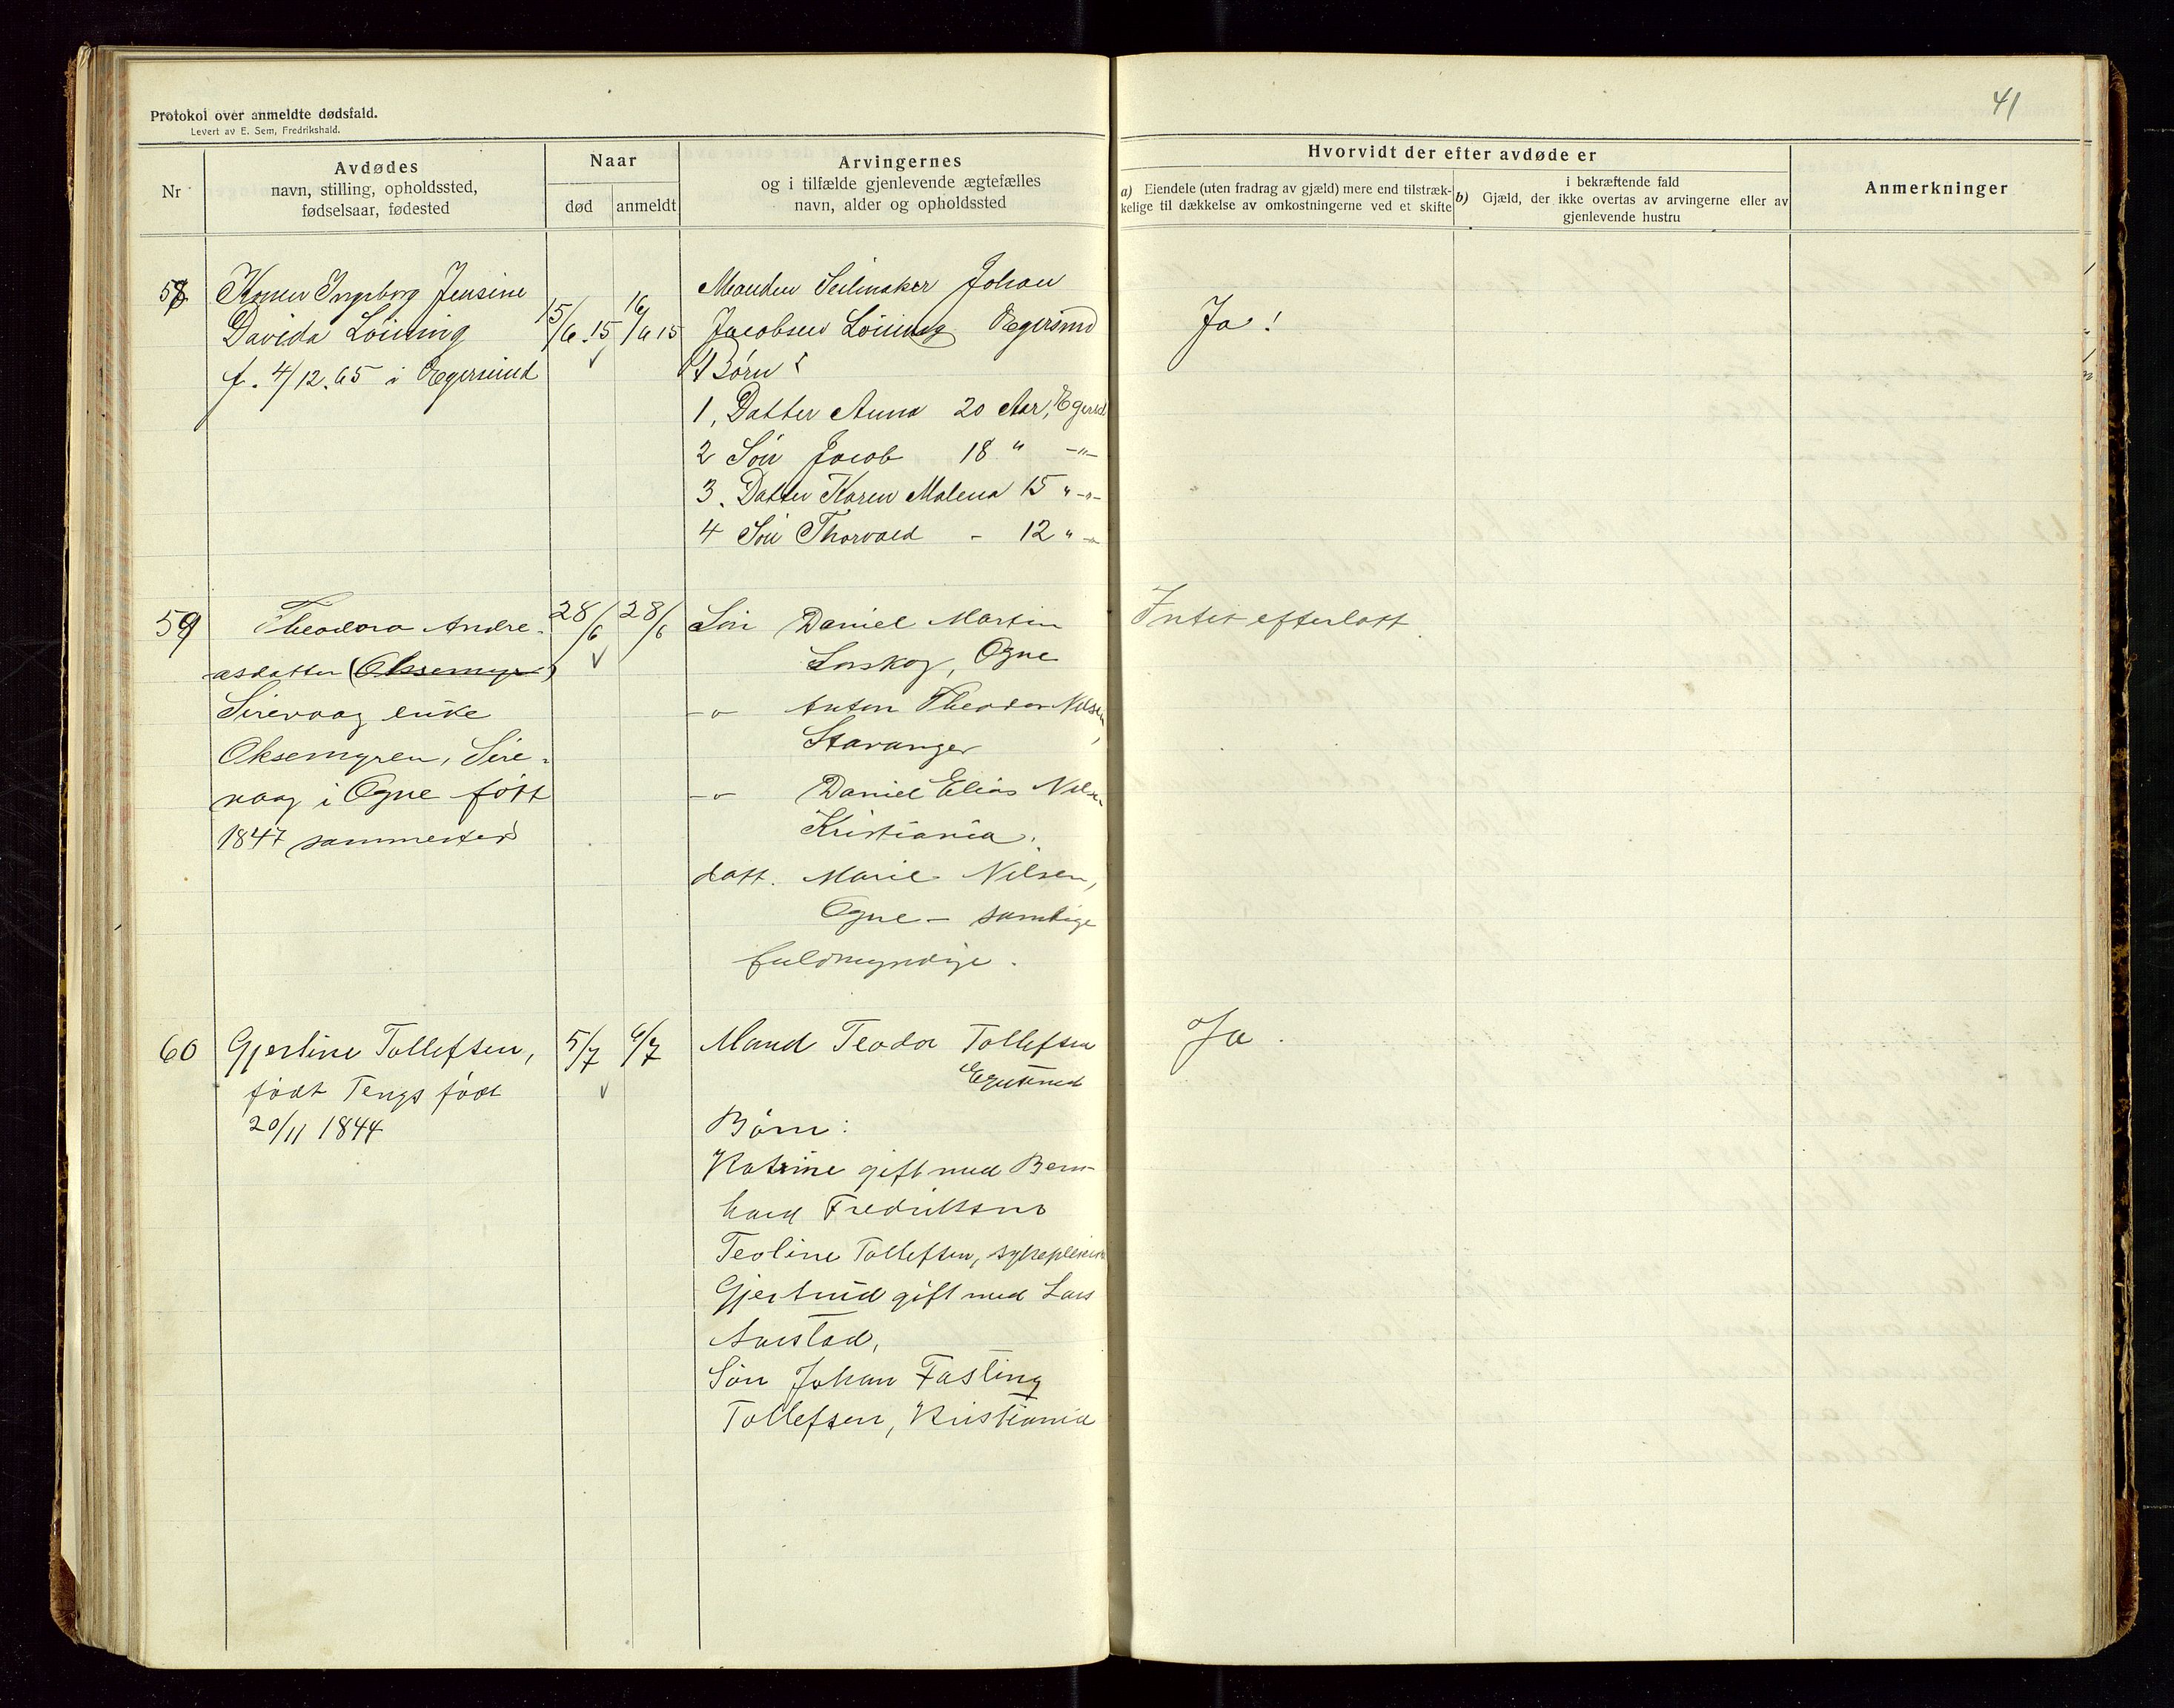 Protokol over anmeldte dødsfald.
Levert av E. Sem, Fredrikshald.
41
Nr
Avdødes
navn, stilling, opholdssted,
fødselsaar, fødested
Naar
død
anmeldt
Arvingernes
og i tilfælde gjenlevende ægtefælles
navn, alder og opholdssted
Hvorvidt der efter avdøde er
a) Eiendele (uten fradrag av gjæld) mere end tilstræk-
kelige til dækkelse av omkostningerne ved et skifte
i bekræftende fald
b) Gjæld, der ikke overtas av arvingerne eller av
gjenlevende hustru
Anmerkninger
58
Konen Ingeborg Jensine
Davida Løining
f. 4/12.65 i Egersund
15/6.15
16/6 15
Manden Seilmaker Johan
Jacobsen Løining Egersund
4 Børn:
1, Datter Anna 20 Aar, Egersd
2 Søn Jacob 18 " -"-
3. Datter Karen Malena 15 " -"-
4 Søn Thorvald - 12 " -"-
Ja!
59
Theodora Andre-
asdatter (Oksemyr)
Sirevaag enke
Oksemyren, Sire-
vaag i Ogne født
1847 sammested
28/6
28/6
Søn Daniel Martin
Ogne
-"- Anton Theodor Nilsen,
Stavanger
-"- Daniel Elias Nilsen
Kristiania.
datt. Marie Nilsen,
Ogne - samtlige
fuldmyndige.
Intet efterlatt.
60
Gjertine Tollefsen,
født Tengs født
20/11 1844
5/7
6/7
Mand Teodor Tollefsen
Egersund
Børn:
Katrine gift med Bern-
hard Fredriksen
Teoline Tollefsen, sykepleierske
Gjertrud gift med Lars
Aarstad,
Søn Johan Fasting
Tollefsen, Kristiania
Ja.